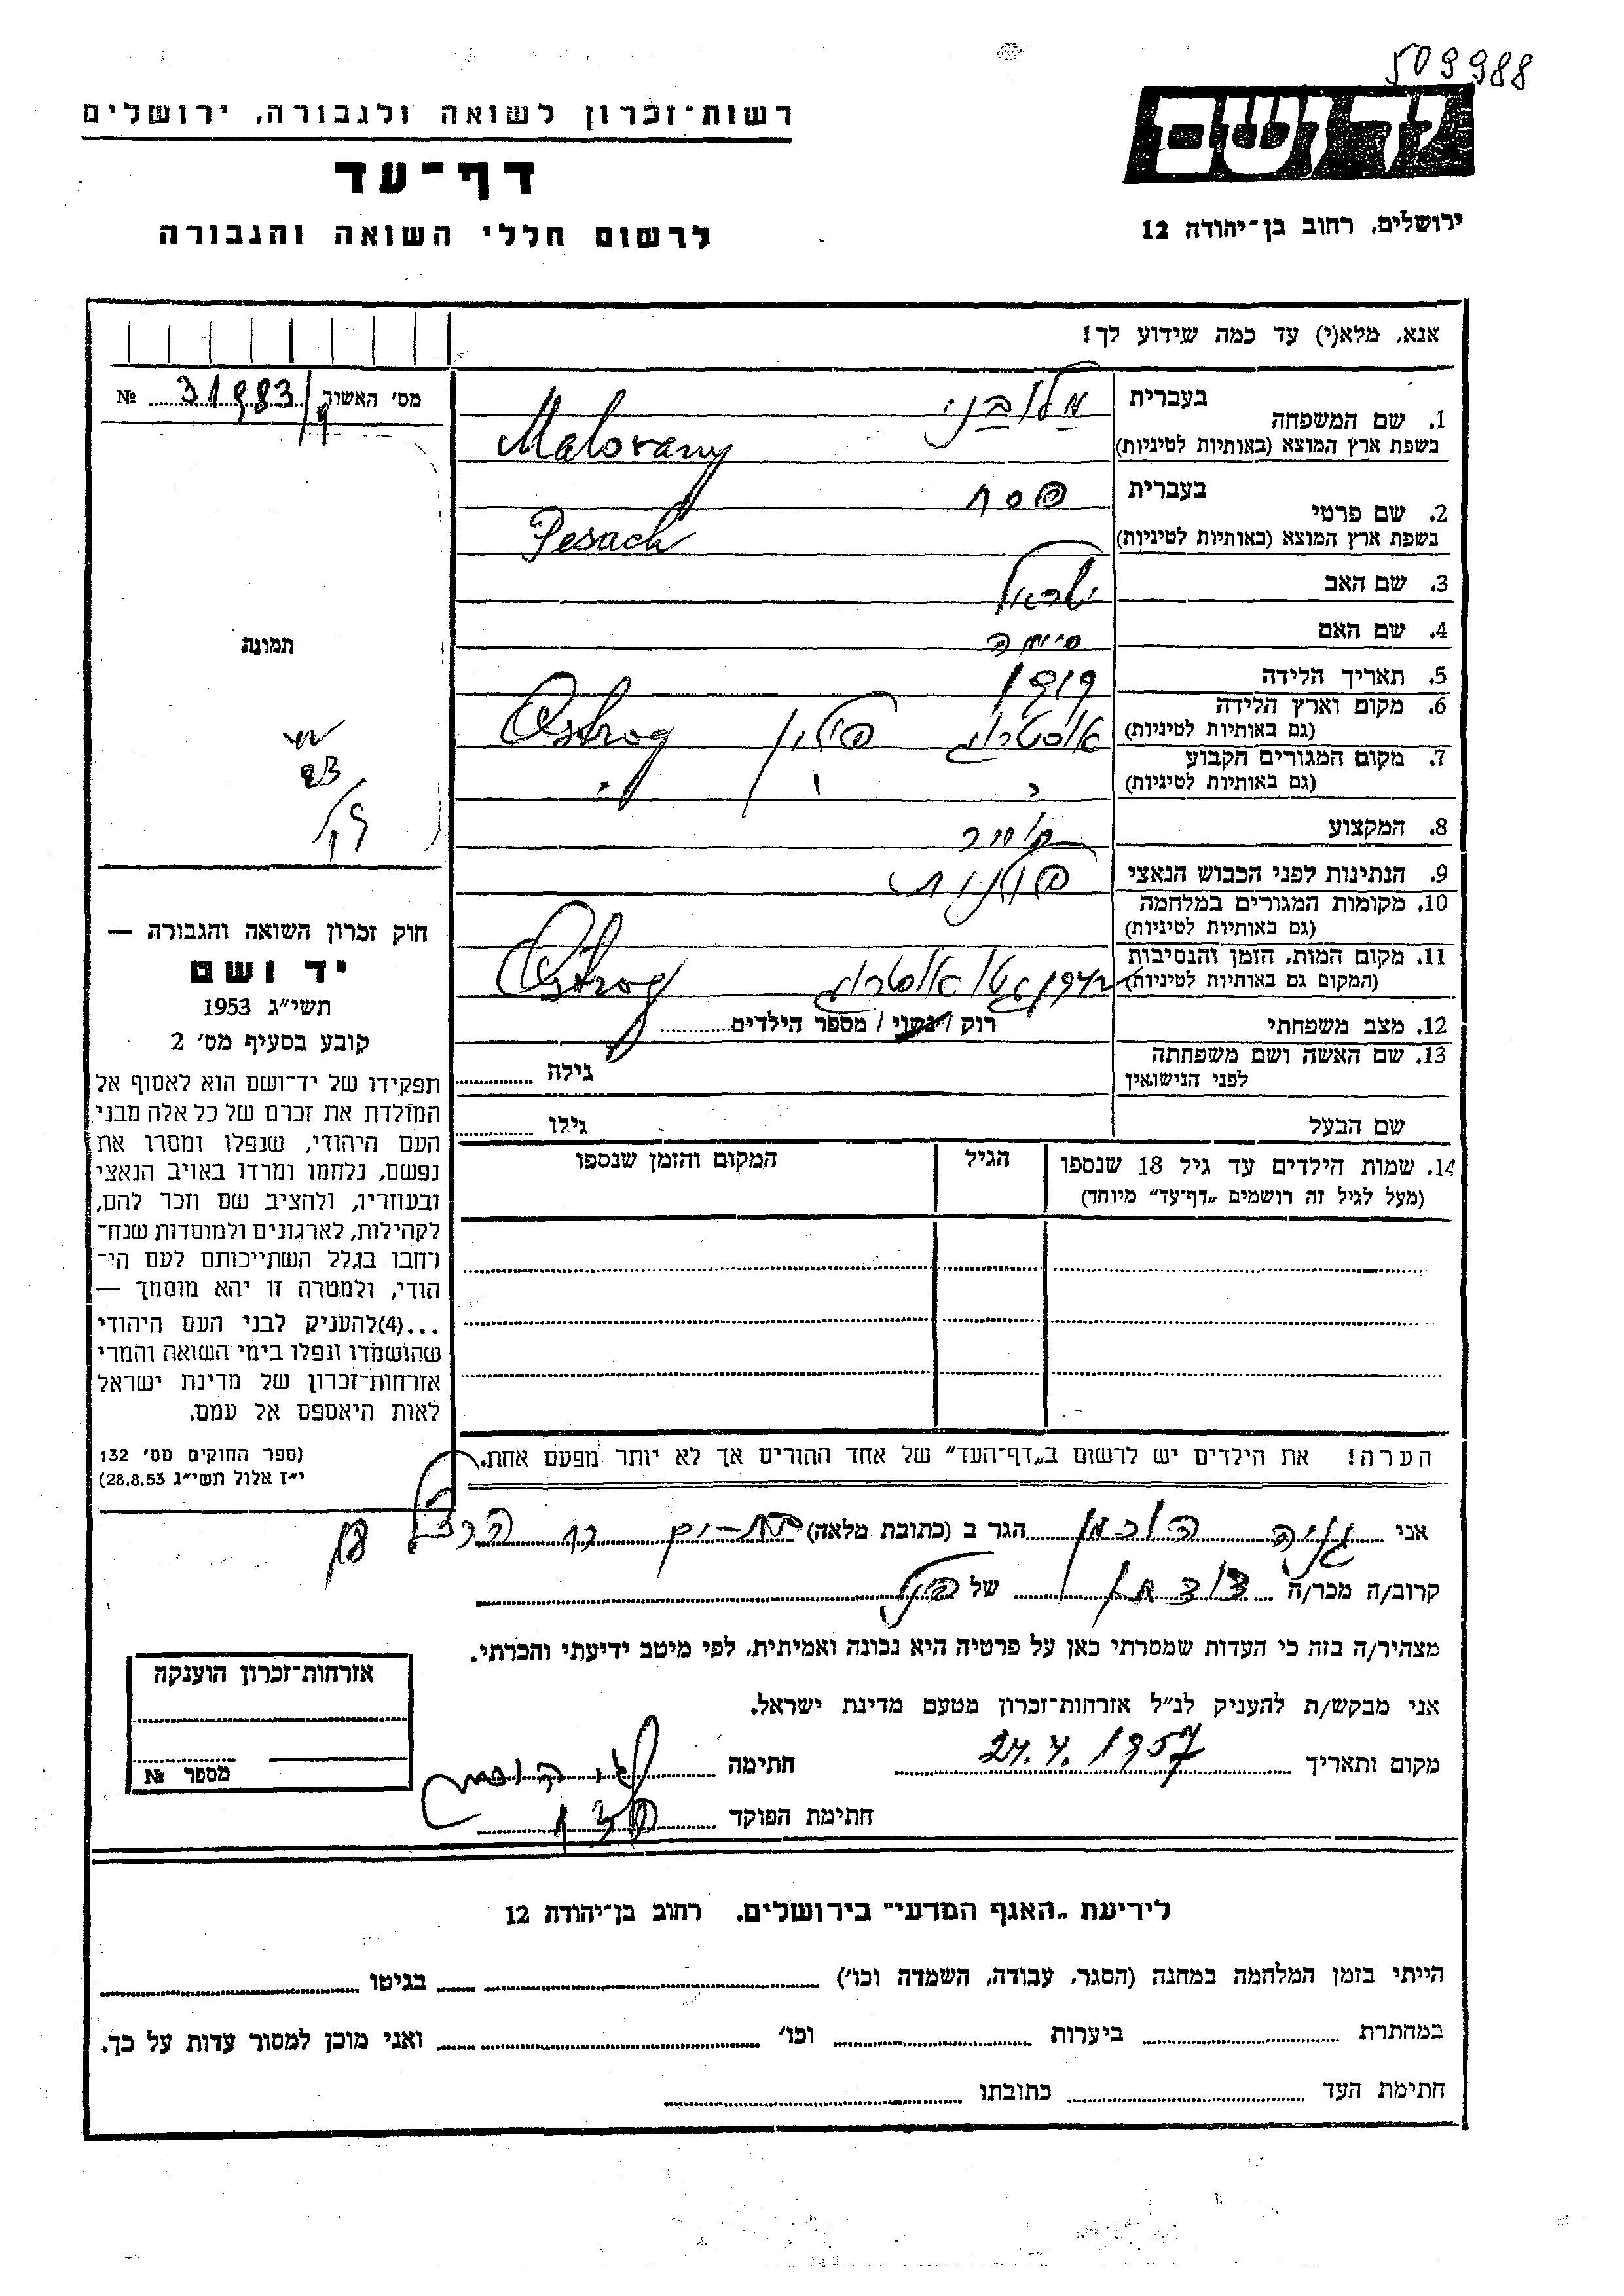 509988
יד ושם
ירושלים, רחוב בן-יהודה 12
רשות-זכרון לשואה ולגבורה, ירושלים
דף-עד
לרשום חללי השואה והגבורה
אנא, מלא(י) עד כמה שידוע לך!
מס' האשור 31983/9 №
1. שם המשפחה
בעברית
בשפת ארץ המוצא (באותיות לטיניות) Malorany
2. שם פרטי
בעברית פסח
בשפת ארץ המוצא (באותיות לטיניות) Pesach
3. שם האב ישראל
4. שם האם
5. תאריך הלידה 1919
6. מקום וארץ הלידה
(גם באותיות לטיניות) אוסטרוג פולין Ostrog
7. מקום המגורים הקבוע
(גם באותיות לטיניות) " " "
8. המקצוע
9. הנתינות לפני הכבוש הנאצי פולנית
10. מקומות המגורים במלחמה
(גם באותיות לטיניות)
11. מקום המות, הזמן והנסיבות
(המקום גם באותיות לטיניות) גטו אוסטרוג Ostrog
12. מצב משפחתי רוק / נשוי / מספר הילדים
13. שם האשה ושם משפחתה
לפני הנישואין גילה
שם הבעל גילו
14. שמות הילדים עד גיל 18 שנספו הגיל המקום והזמן שנספו
(מעל לגיל זה רושמים „דף-עד" מיוחד)
הערה! את הילדים יש לרשום ב„דף-העד" של אחד ההורים אך לא יותר מפעם אחת.
תמונה
חוק זכרון השואה והגבורה —
יד ושם
תשי"ג 1953
קובע בסעיף מס' 2
תפקידו של יד-ושם הוא לאסוף אל
המולדת את זכרם של כל אלה מבני
העם היהודי, שנפלו ומסרו את
נפשם, נלחמו ומרדו באויב הנאצי
ובעוזריו, ולהציב שם וזכר להם,
לקהילות, לארגונים ולמוסדות שנח־
רבו בגלל השתייכותם לעם הי־
הודי, ולמטרה זו יהא מוסמך —
...(4)להעניק לבני העם היהודי
שהושמדו ונפלו בימי השואה והמרי
אזרחות-זכרון של מדינת ישראל
לאות היאספם אל עמם.
(ספר החוקים מס' 132
י"ז אלול תשי"ג 28.8.53)
אני גניה הוכמן הגר ב (כתובת מלאה) בת-ים רח הרצל
קרוב/ה מכר/ה של
מצהיר/ה בזה כי העדות שמסרתי כאן על פרטיה היא נכונה ואמיתית, לפי מיטב ידיעתי והכרתי.
אני מבקש/ת להעניק לנ"ל אזרחות-זכרון מטעם מדינת ישראל.
מקום ותאריך 24.4.1957 חתימה
חתימת הפוקד
אזרחות-זכרון הוענקה
מספר №
לידיעת „האגף המדעי" בירושלים, רחוב בן-יהודה 12
הייתי בזמן המלחמה במחנה (הסגר, עבודה, השמדה וכו') בגיטו
במחתרת ביערות וכו' ואני מוכן למסור עדות על כך.
חתימת העד כתובתו